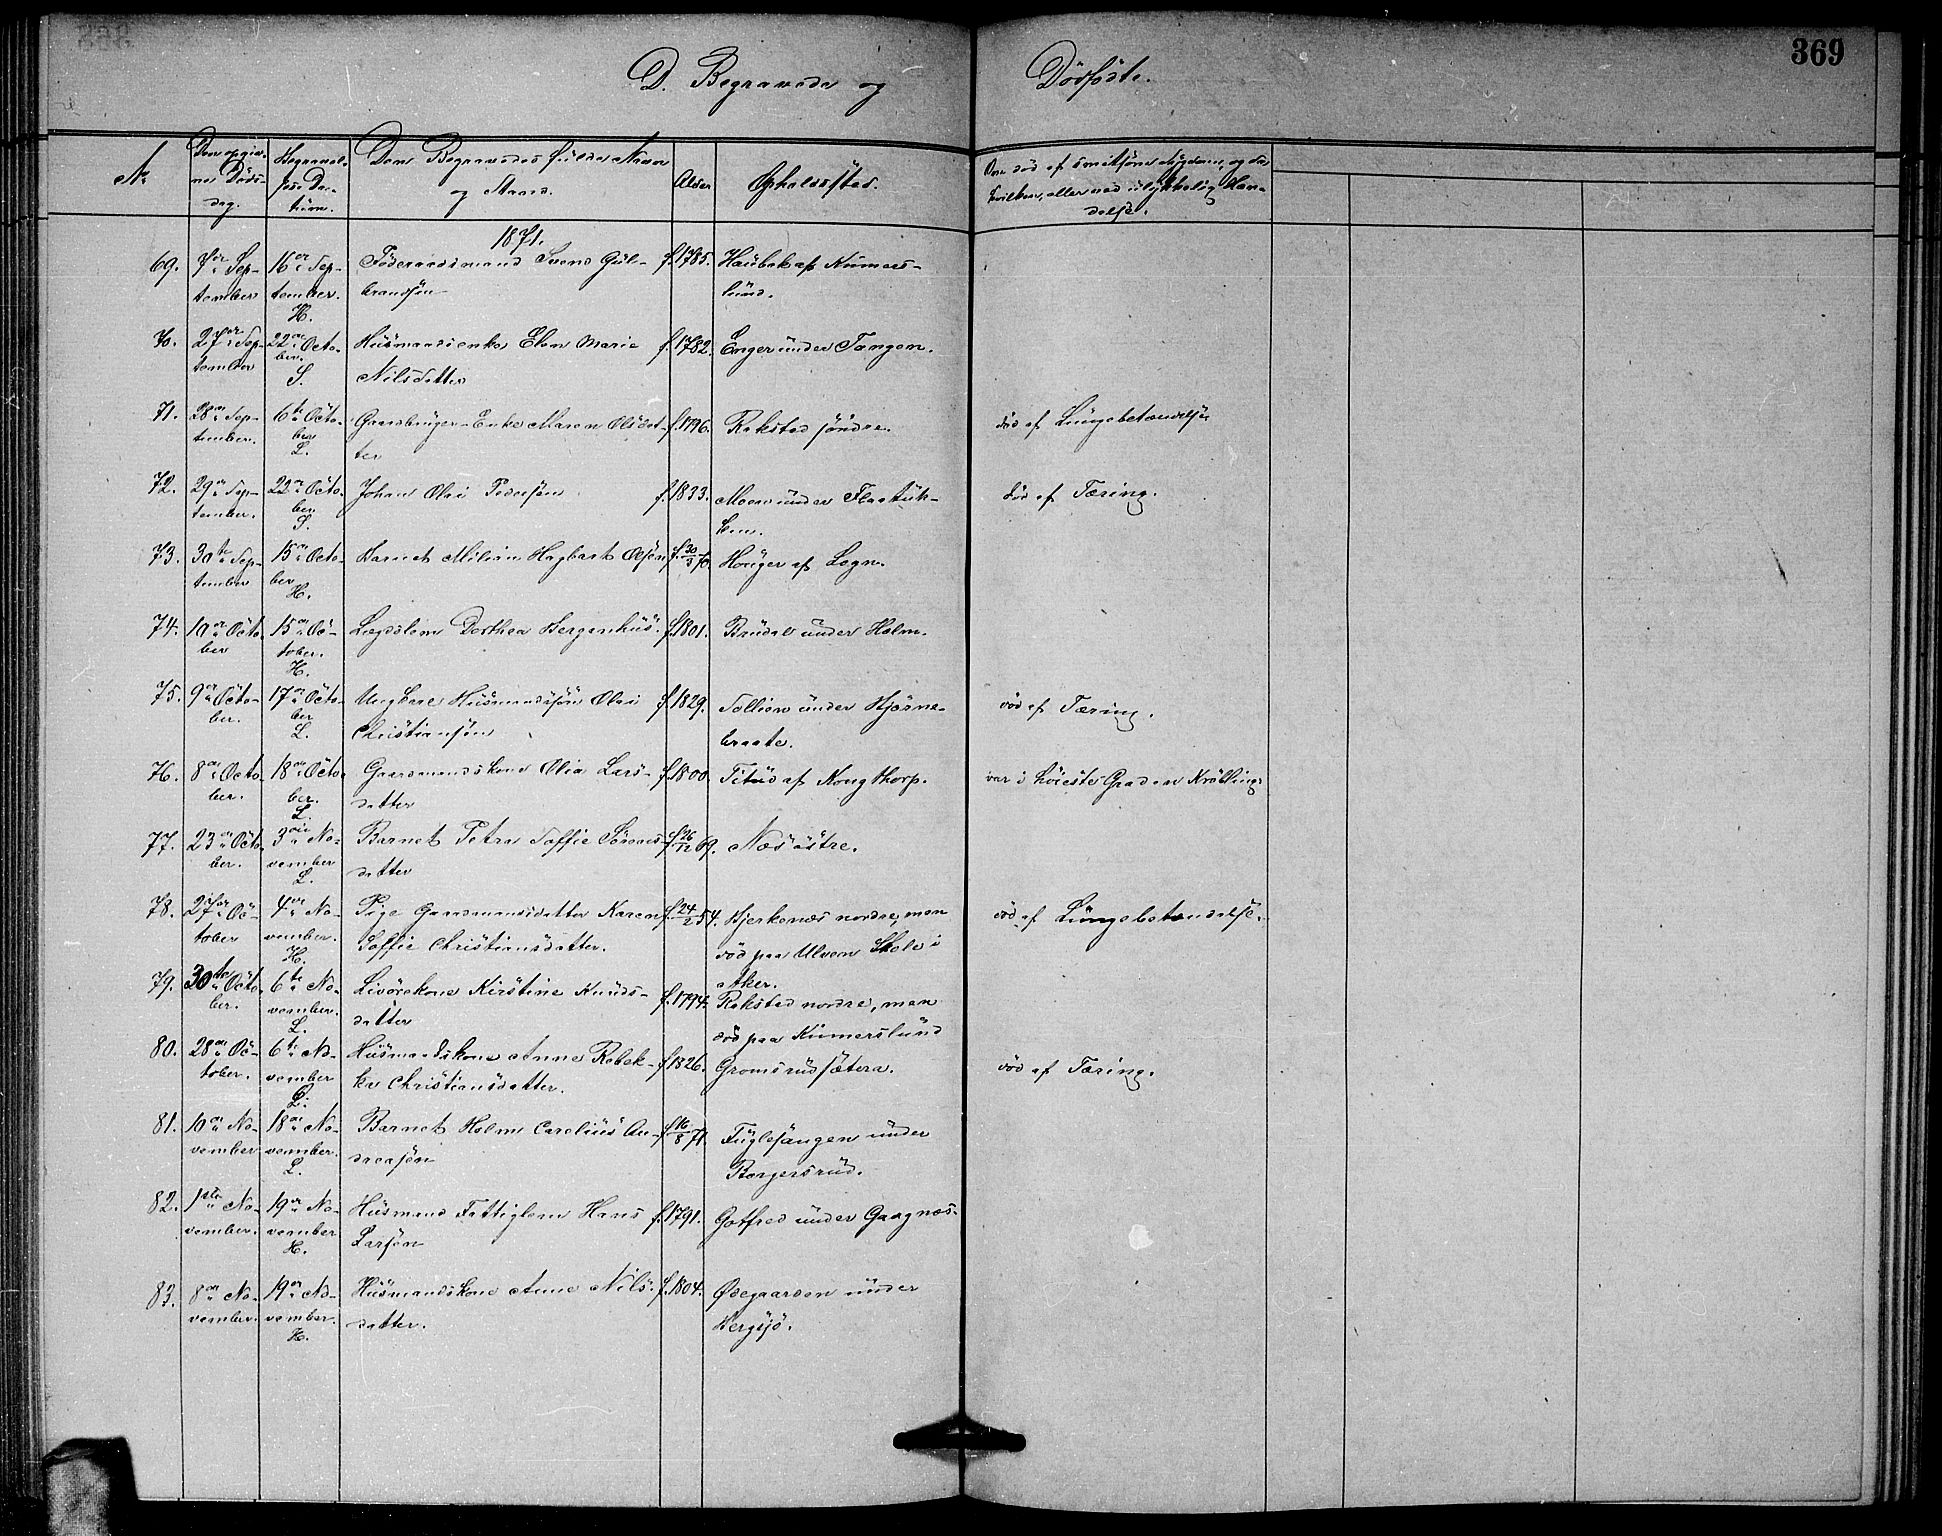 369
D. Begravede og Dødfødte.
No
Den opgivne Dødsdag.
Begravelses Datum.
Den Begravedes fulde Navn og Stand.
Alder
Opholdssted.
Om død af smitsom Sygdom, og da hvilken, eller ved ulykkelig Hændelse.
1871.
69. 7de September 16de September. H. Føderaadsmand Svend Gulbrandsen f. 1785. Haubak af Kumerslund.
70. 27de September 22de October. S. Husmandsenke Elen Marie Nilsdatter f. 1782. Enger under Tangen.
71. 28de September. 6te October L. Gaardbruger-Enke Maren Olsdatter f. 1796. Rakstad søndre. død af Lungebetændelse
72. 29de September. 22de October S. Johan Olai Pedersen f. 1833. Moen under Flaatükben. død af Tæring.
73. 30te September 15de October H. Barnet Milian Hagbart Olsen f. 30/5 70. Houger af Sogn.
74. 10de October 15de October. H. Lægdslem Dorthea Bergerhus. f. 1801. Brudal under Holm.
75. 9de October. 17de October L. Ungkarl Husmandssøn Olai Christiansen f. 1829. under Hjørnebraate. død af Tæring.
76. 8de October. 18de October. L. Gaardmandskone Olia Larsdatter f. 1800. af Kongthorp. var i høieste Graden Krøbling
77. 23de October. 3die November L. Barnet Petra Soffie Sørensdatter f. 26/12 69. Næs østre.
78. 27de October 4de November. H. Pige Gaardmandsdatter Karen Soffie Christiansdatter. f. 24/2 54. Hjerkenæs nordre, men død paa Ulven Skole i Aker. død af Lungebetændelse.
79. 30te October. 6te November. L. Livørekone Kirstine Knudsdatter f. 1794. Rakstad nordre, men død paa Kumerslund
80. 28de October. 6te November L. Husmandskone Anne Rebekka Christiansdatter. f. 1826. Gromsrudsætera. død af Tæring.
81. 10de November 18de November. L. Barnet Holm Carelius Andreasen f. 16/8 71. Fuglesangen under Borgersrud.
82. 1ste November. 19de November H. Husmand Fattiglem Hans Larsen f. 1791. Gotfred under Gaagnæs.
83. 8de November. 19de November. H. Husmandskone Anne Nilsdatter. f. 1804. Ødegaarden under Bergsjø.